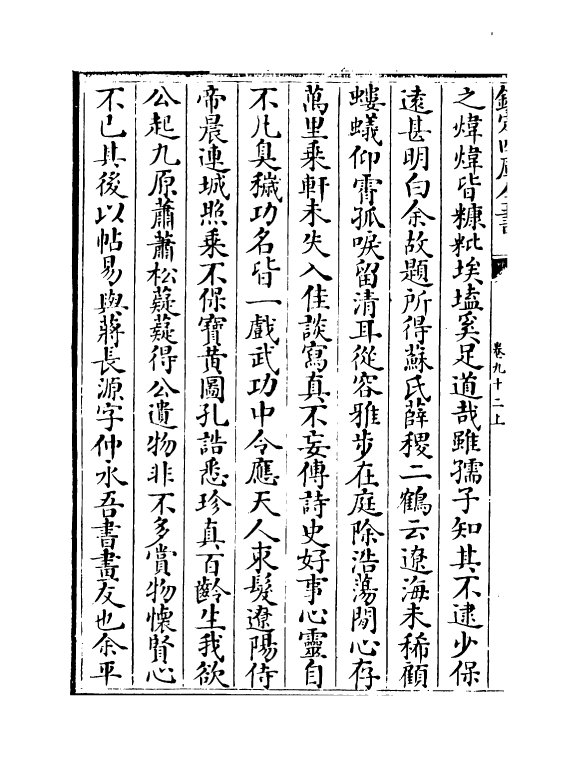 欽定四庫全書
卷九十二上
之煒煒皆糠粃埃壒奚足道哉雖孺子知其不逮少保
逺甚明白余故題所得蘇氏薛稷二鶴云遼海未稀顧
螻蟻仰霄孤唳留清耳從容雅步在庭除浩蕩閒心存
萬里乘軒未失入佳談寫真不妄傳詩史好事心靈自
不凡臭穢功名皆一戲武功中令應天人束髮遼陽侍
帝晨連城照乘不保寶黄圖孔誥悉珍真百齡生我欲
公起九原蕭蕭松薿薿得公遺物非不多賞物懷賢心
不已其後以帖易與蔣長源字仲永吾書畫友也余平